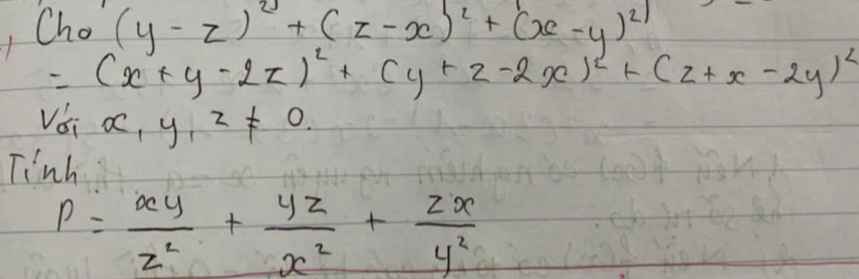 Cho (y - z)² + (z - x)² + (x - y)²
= (x + y - 2z)² + (y + z - 2x)² + (z + x - 2y)²
Với x, y, z ≠ 0.
Tính
P = xy/z² + yz/x² + zx/y²